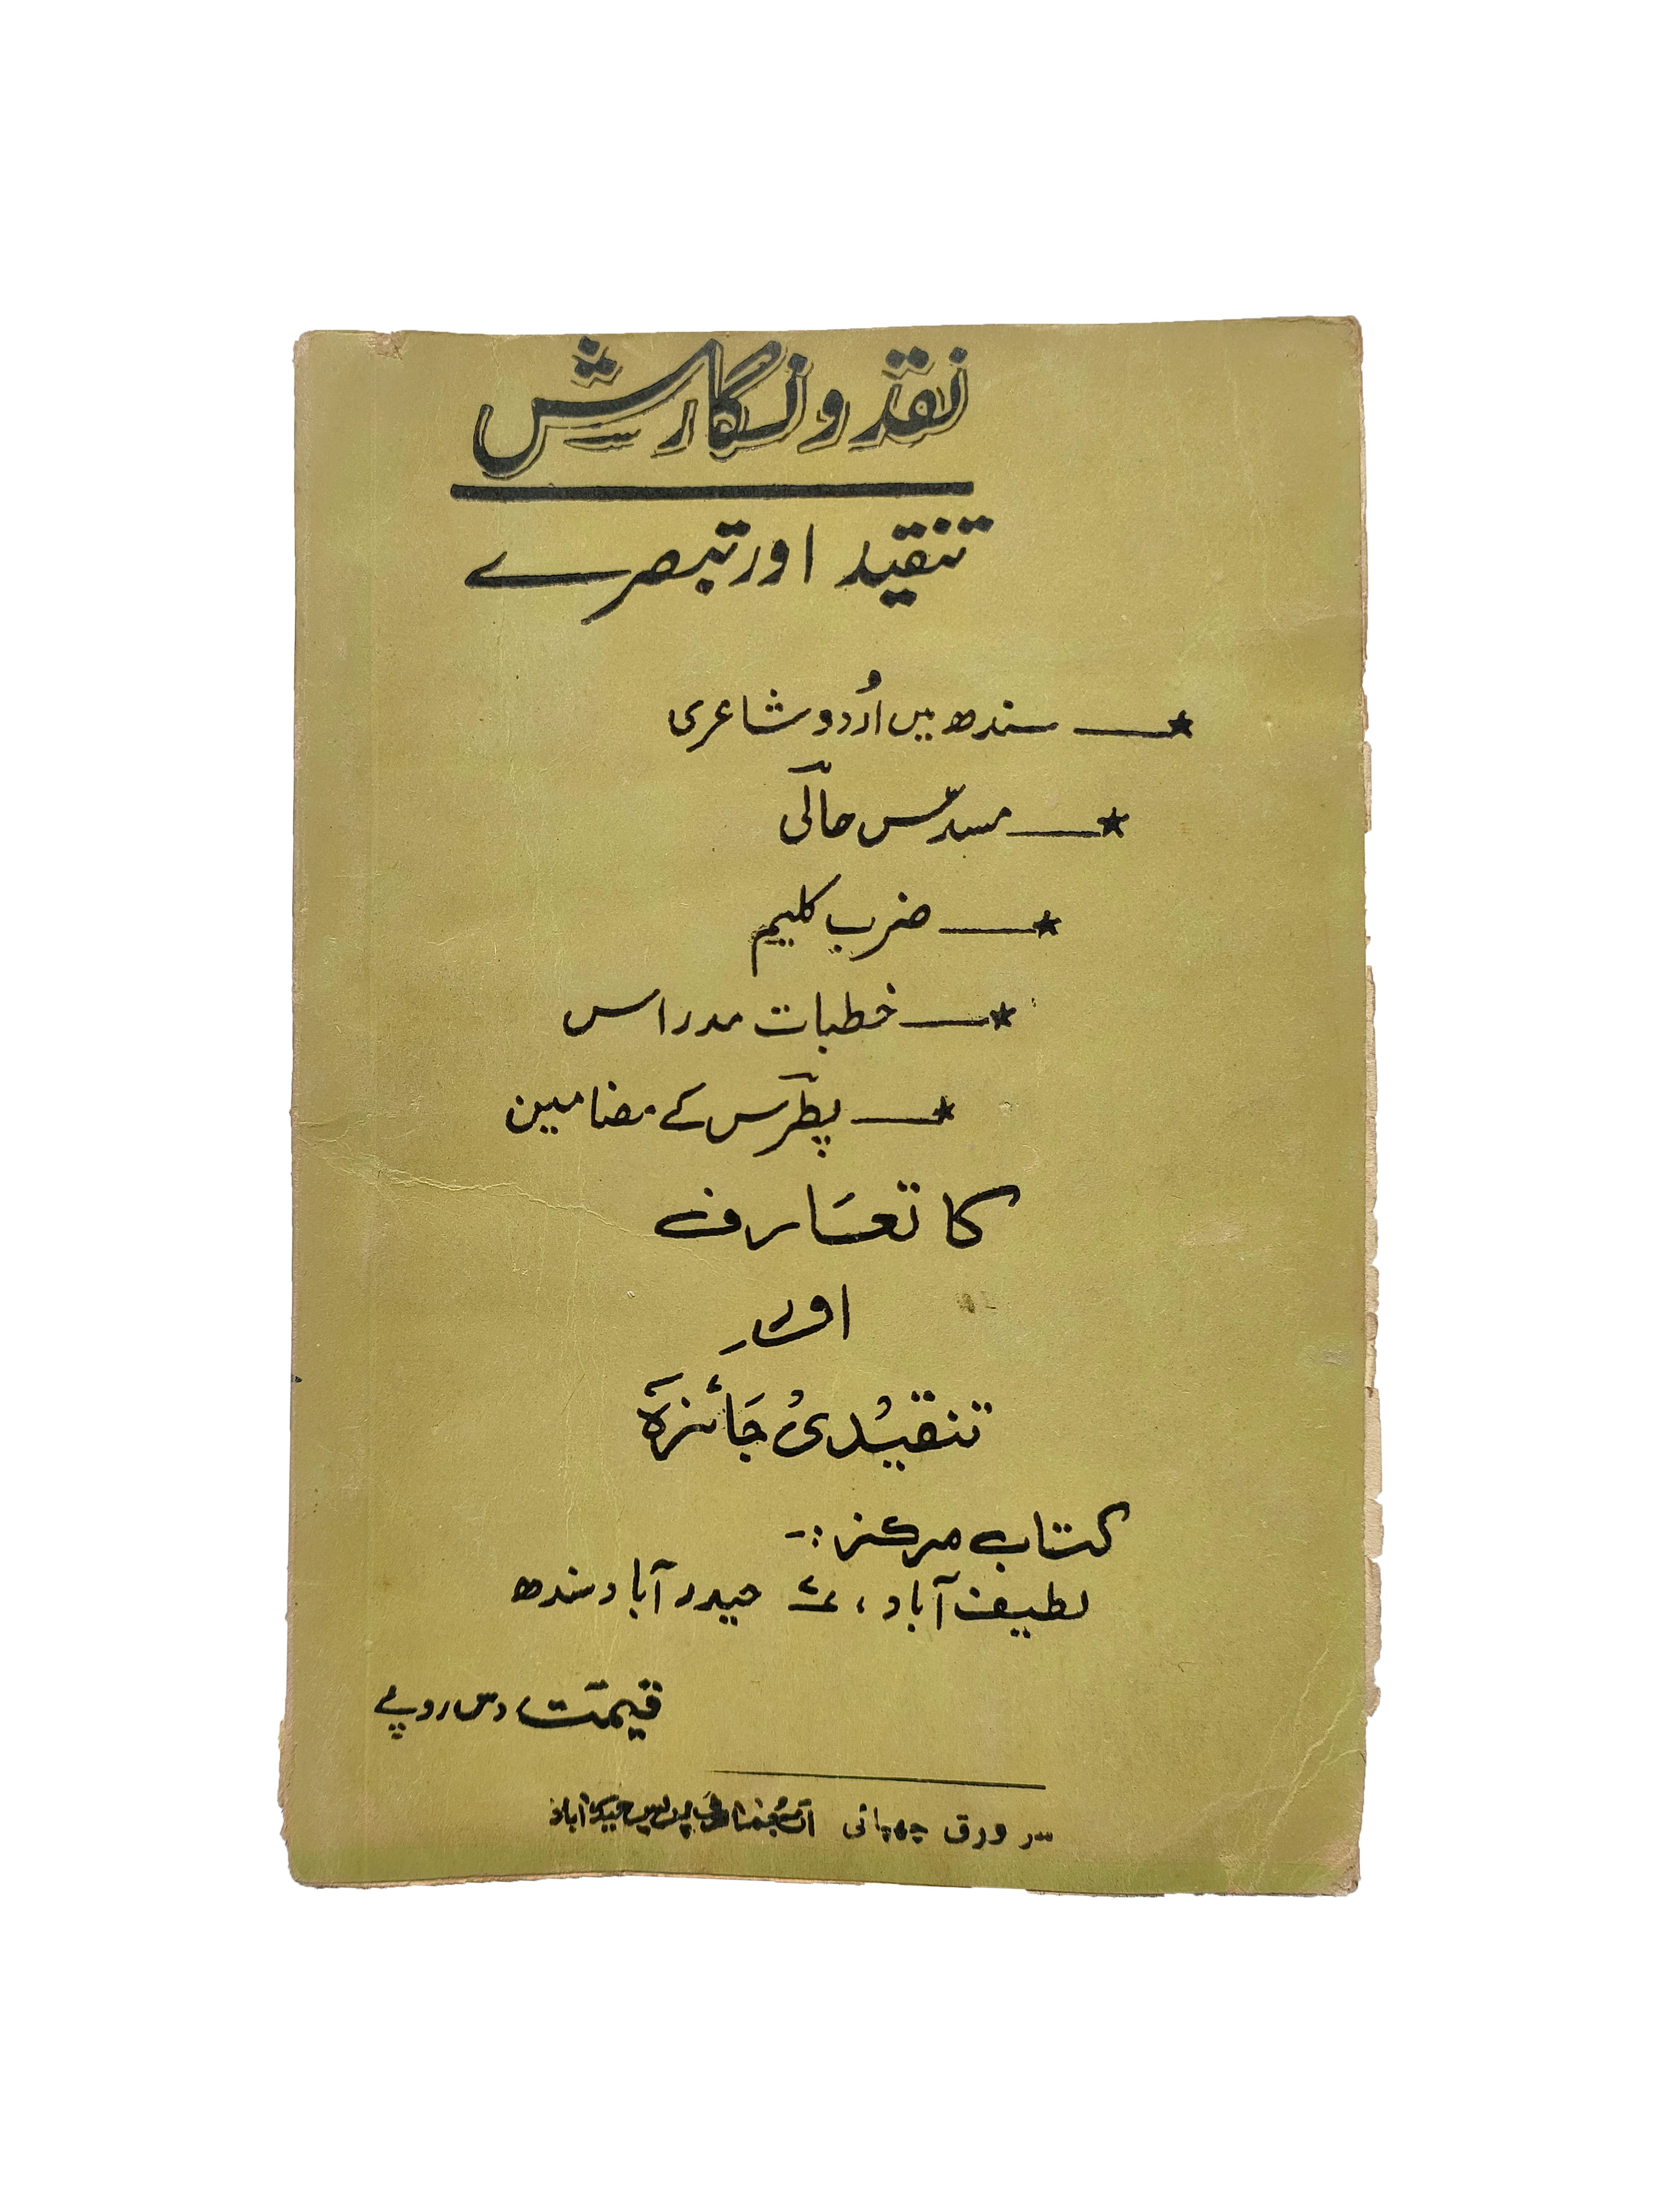 نقد و نگارش
تنقید اور تبصرے
★ـــ سندھ میں اُردو شاعری
★ـــ مسدّس حالؔی
★ـــ ضرب کلیم
★ـــ خطبات مدراس
★ـــ پطرؔس کے مضامین
کا تعَارف
اور
تنقیْدیْ جَائزہ
کتاب مرکز :-
لطیف آباد، حیدرآباد سندھ
قیمت دس روپے
سرورق چھپائی پریس حیدرآباد